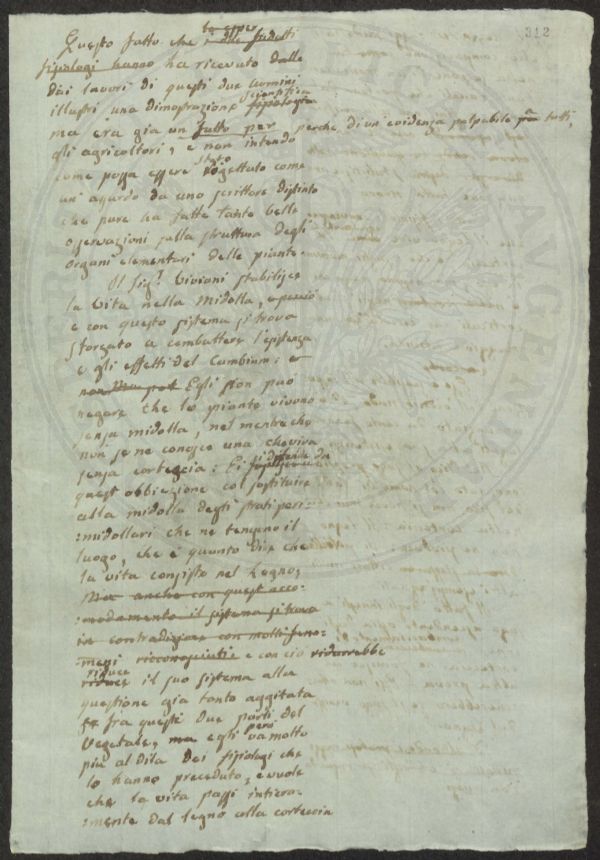 312
Questo fatto che i due sudetti
fisiologi hanno ha ricevuto dalle
dai lavori di questi due uomini
illustri una dimostrazione scientifica fisiologica
ma era gia un fatto per perche di un'evidenza palpabile pra tutti,
gli agricoltori, e non intendo
come possa essere stato rigettato come
un' azardo da uno scrittore distinto
che pure ha fatte tante belle
osservazioni sulla struttura degli
organi elementari delle piante.
Il Sig.r Viviani stabilisce
la vita nella Midolla,
e con questo sistema si trova
sforzato a combattere l'esistenza
e gli effetti del Cambium: e
non Ma pot Egli non può
negare che le piante vivono
senza midolla, nel mentre che
non se ne conosce una che viva
senza corteccia: Ei si difende da
quest'obbiezione col sostituire
alla midolla degli strati peri:
:midollari che ne tengono il
luogo, che è quanto dire che
la vita consiste nel Legno;
Ma anche con quest'acco:
:modamento il sistema si trova
in contradizione con molti feno:
:meni riconosciuti e con ciò ridurrebbe
riduce il suo sistema alla
questione gia tanto aggitata
fra queste due parti del
Vegetale, ma egli però va molto
più al di là dei fisiologi che
lo hanno preceduto, e vuole
che la vita passi intiera:
:mente dal legno alla corteccia